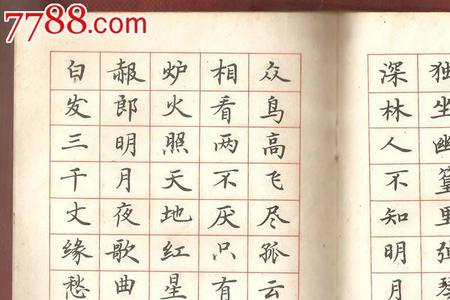 7788.com
独坐幽篁里弹琴
深林人不知明月
众鸟高飞尽孤云
相看两不厌只有
炉火照天地红星
赧郎明月夜歌曲
白发三千丈缘愁